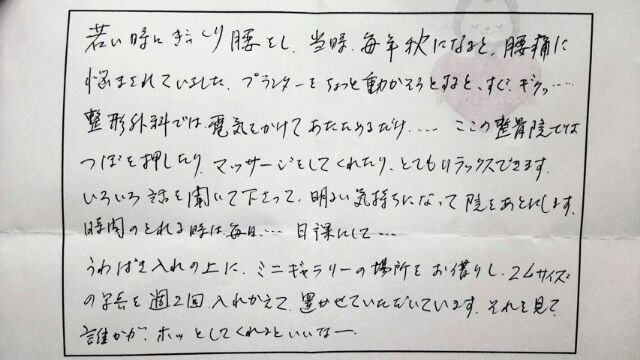 若い時にぎっくり腰をし、当時、毎年秋になると、腰痛に
悩まされていました。プランターをちょっと動かそうとすると、すぐ、ギクッ……
整形外科では電気をかけてあたためるだけ、… ここの整骨院では
つぼを押したり、マッサージをしてくれたり、とてもリラックスできます。
いろいろ話を聞いて下さって、明るい気持ちになって院をあとにします。
時間のとれる時は毎日…、日課にして…
うわばき入れの上に、ミニギャラリーの場所をお借りし、2Lサイズ
の写真を週2回入れかえて、置かせていただいています。それを見て、
誰かが、ホッとしてくれるといいなー